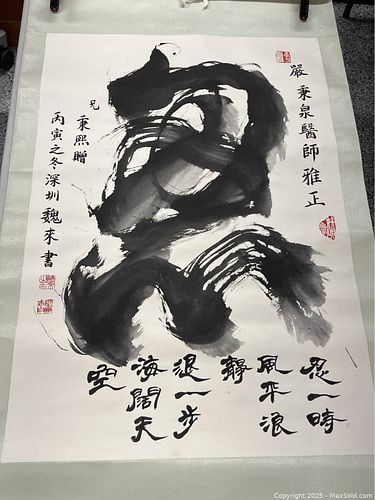 嚴秉泉醫師雅正
忍一時
風平浪
靜
退一步
海闊天
空
兄秉熙贈
丙寅之冬深圳魏來書
Copyright 2025 - MaxSold.com